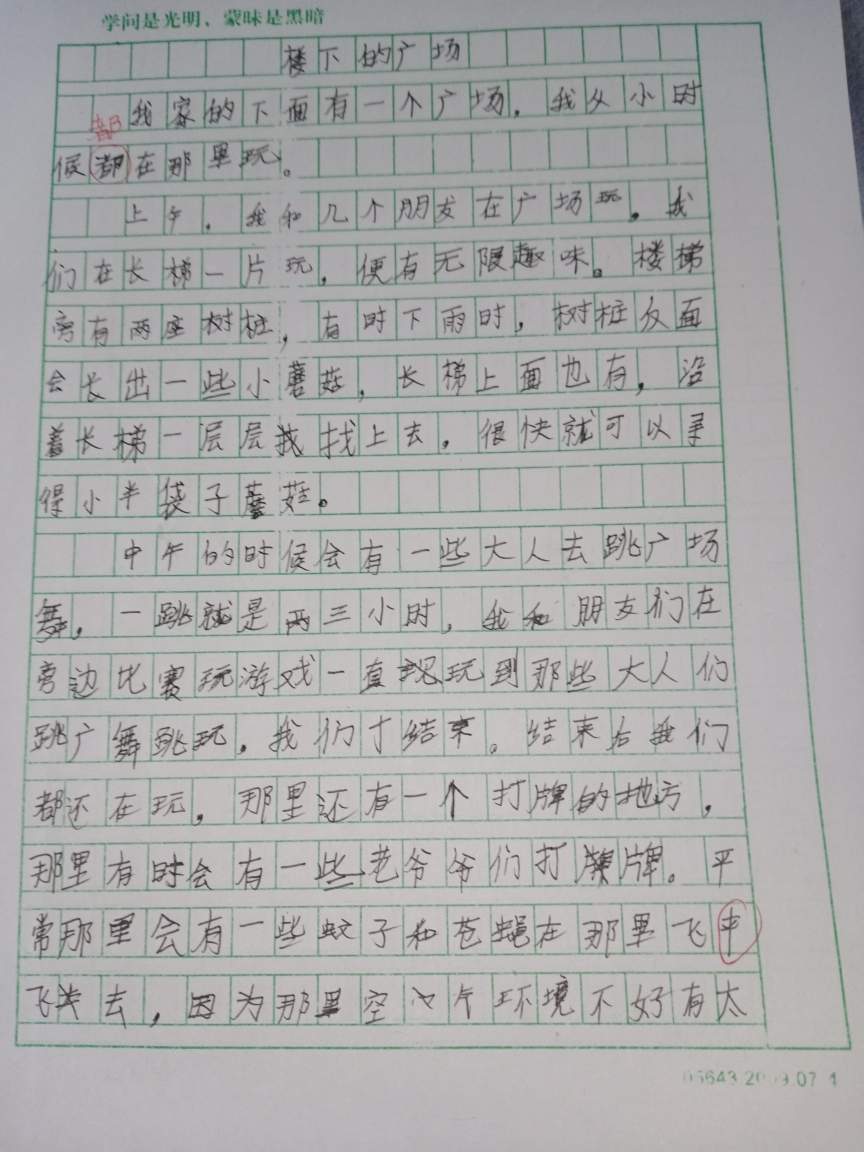 学问是光明、蒙昧是黑暗
楼下的广场
都
我家的下面有一个广场，我从小时
候都在那里玩。
上午，我和几个朋友在广场玩，我
们在长梯一片玩，便有无限趣味。楼梯
旁有两座树桩，有时下雨时，树桩反面
会长出一些小蘑菇，长梯上面也有，沿
着长梯一层层找上去，很快就可以寻
得小半袋子蘑菇。
中午的时候会有一些大人去跳广场
舞，一跳就是两三小时，我和朋友们在
旁边比赛玩游戏一直玩到那些大人们
跳广舞跳玩，我们才结束。结束后我们
都还在玩，那里还有一个打牌的地方，
那里有时会有一些老爷爷们打牌。平
常那里会有一些蚊子和苍蝇在那里飞
飞去，因为那里空气环境不好有太